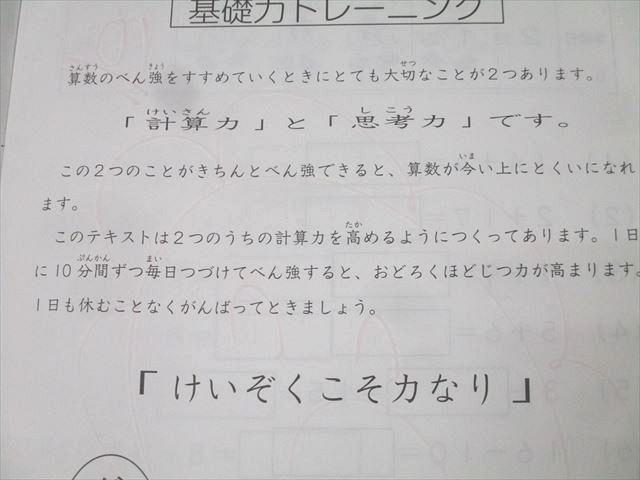 基礎力トレーニング
算数のべん強をすすめていくときにとても大切なことが2つあります。
「計算力」と「思考力」です。
この2つのことがきちんとべん強できると、算数が今い上にとくいになれ
ます。
このテキストは2つのうちの計算力を高めるようにつくってあります。1日
に10分間ずつ毎日つづけてべん強すると、おどろくほどじつ力が高まります。
1日も休むことなくがんばってときましょう。
「けいぞくこそ力なり」